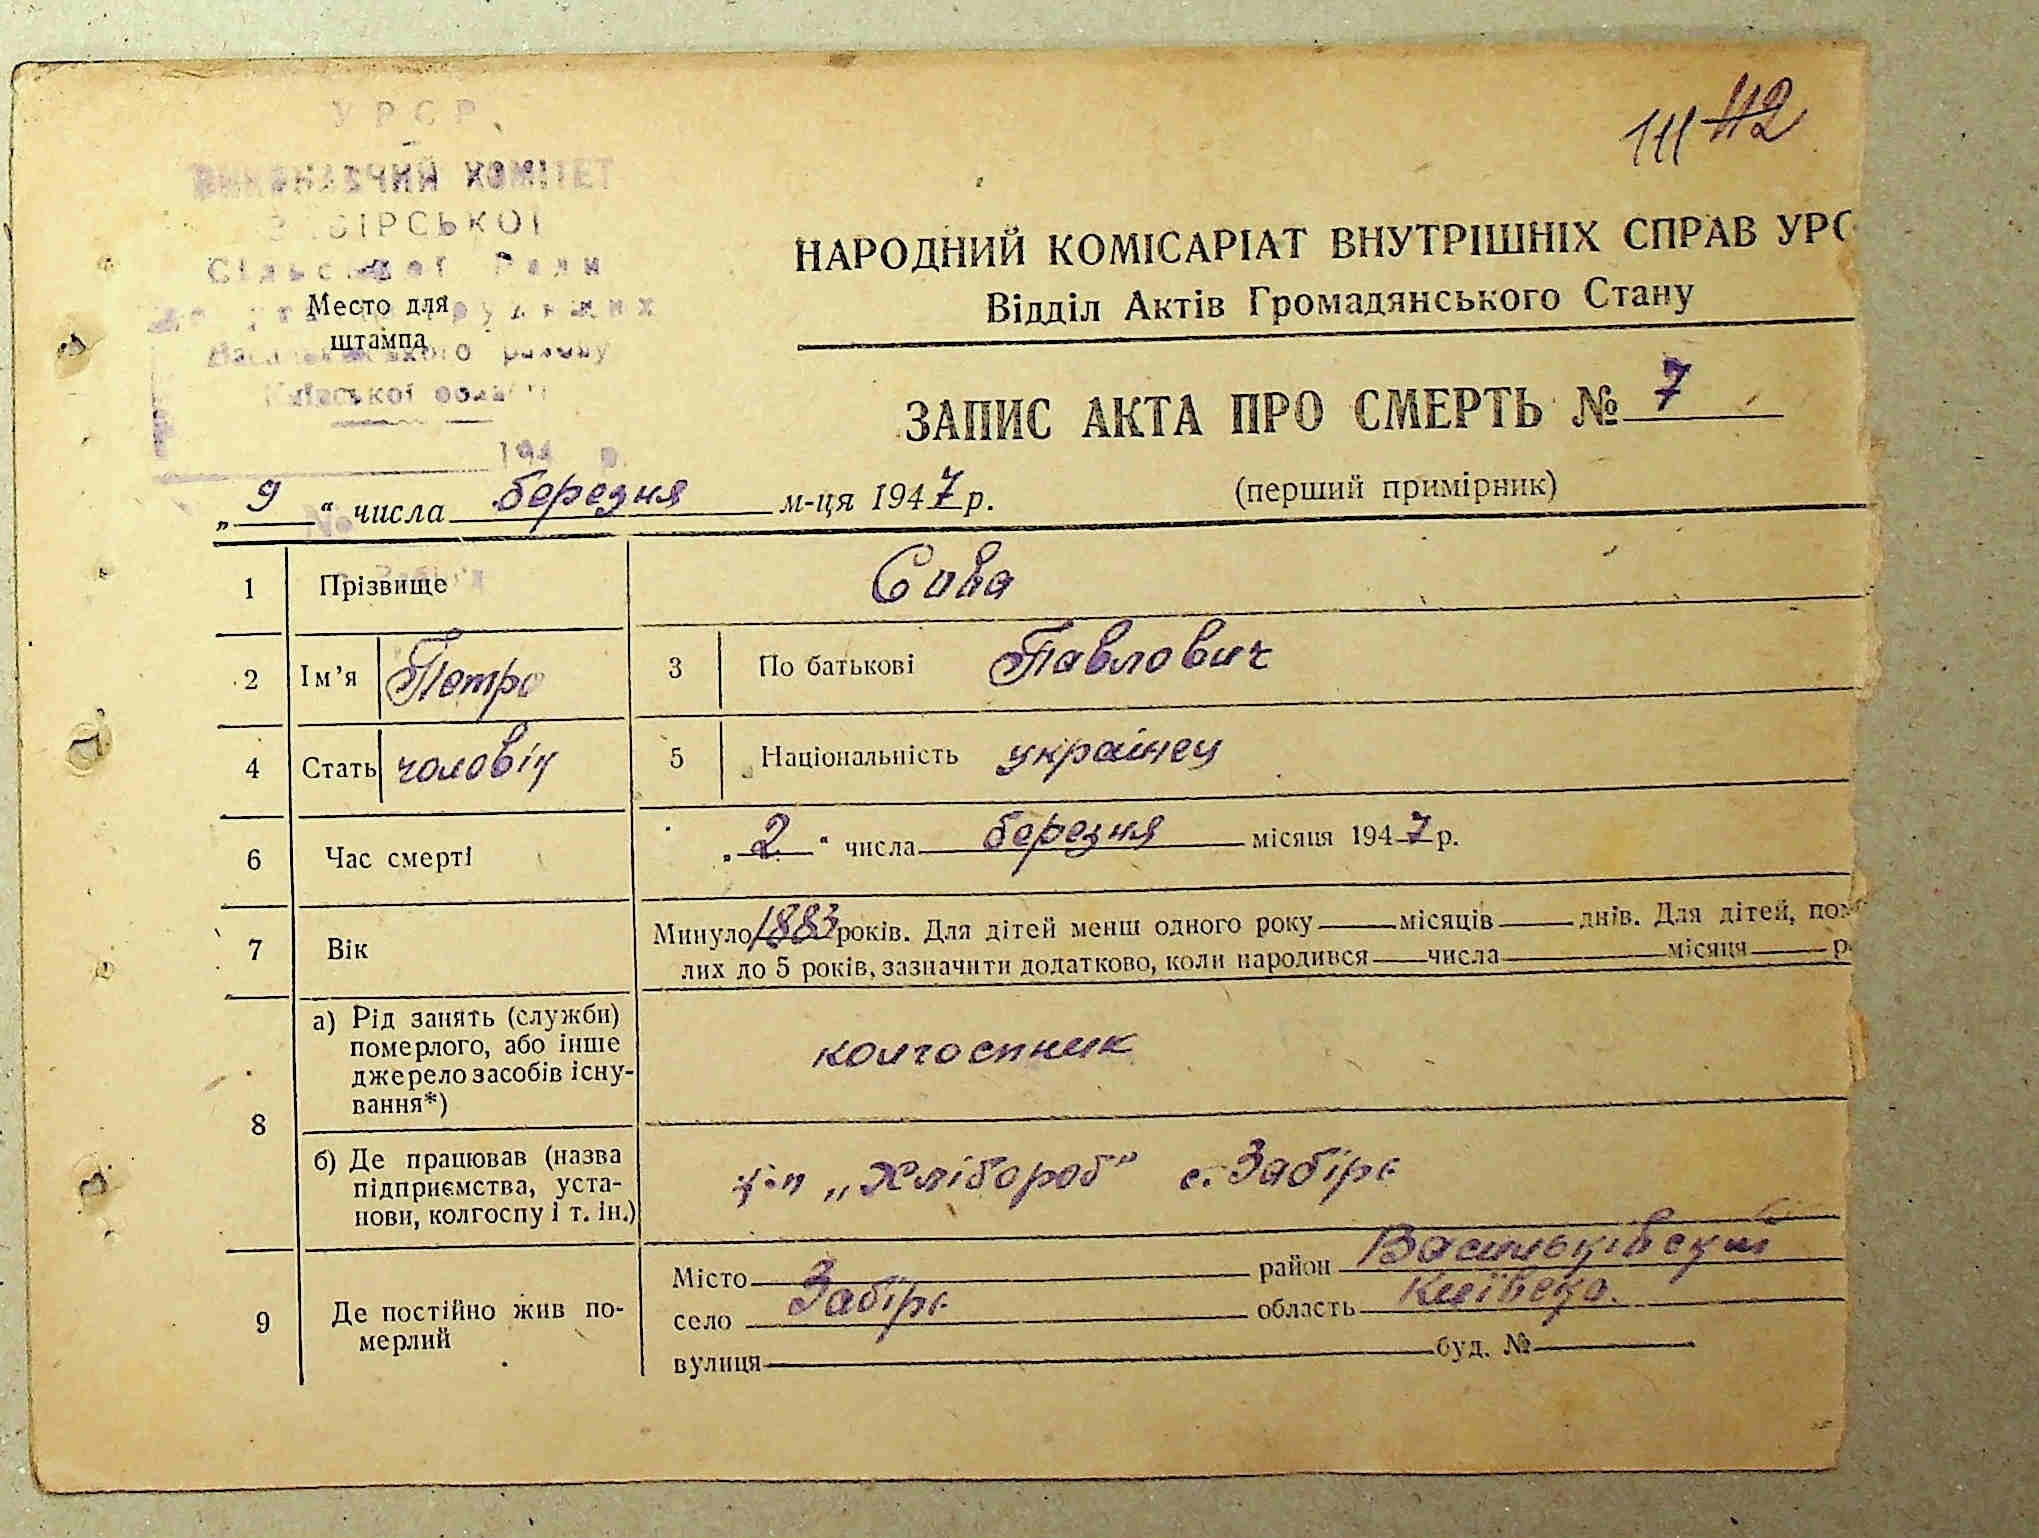 111 112
УРСР
ВИКОНАВЧИЙ КОМІТЕТ
ЗАБІРСЬКОЇ
Сільської Ради
Васильківського району
Київської області
194 р.
№
Место для
штампа
НАРОДНИЙ КОМІСАРІАТ ВНУТРІШНІХ СПРАВ УРС
Відділ Актів Громадянського Стану
ЗАПИС АКТА ПРО СМЕРТЬ № 7
„ 9 “ числа березня м-ця 1947 р. (перший примірник)
1 Прізвище Сива
2 Ім’я Петро 3 По батькові Павлович
4 Стать чоловіч 5 Національність українец
6 Час смерті „ 2 “ числа березня місяця 1947 р.
7 Вік Минуло 1883 років. Для дітей менш одного року місяців днів. Для дітей, пом
лих до 5 років, зазначити додатково, коли народився числа місяця р
8 а) Рід занять (служби)
померлого, або інше
джерело засобів існу-
вання*) колгоспник
б) Де працював (назва
підприємства, уста-
нови, колгоспу і т. ін.) „Хлібороб” с. Забірє
9 Де постійно жив по-
мерлий
Місто район Васильківский
село Забірє область Київска.
вулиця буд. №